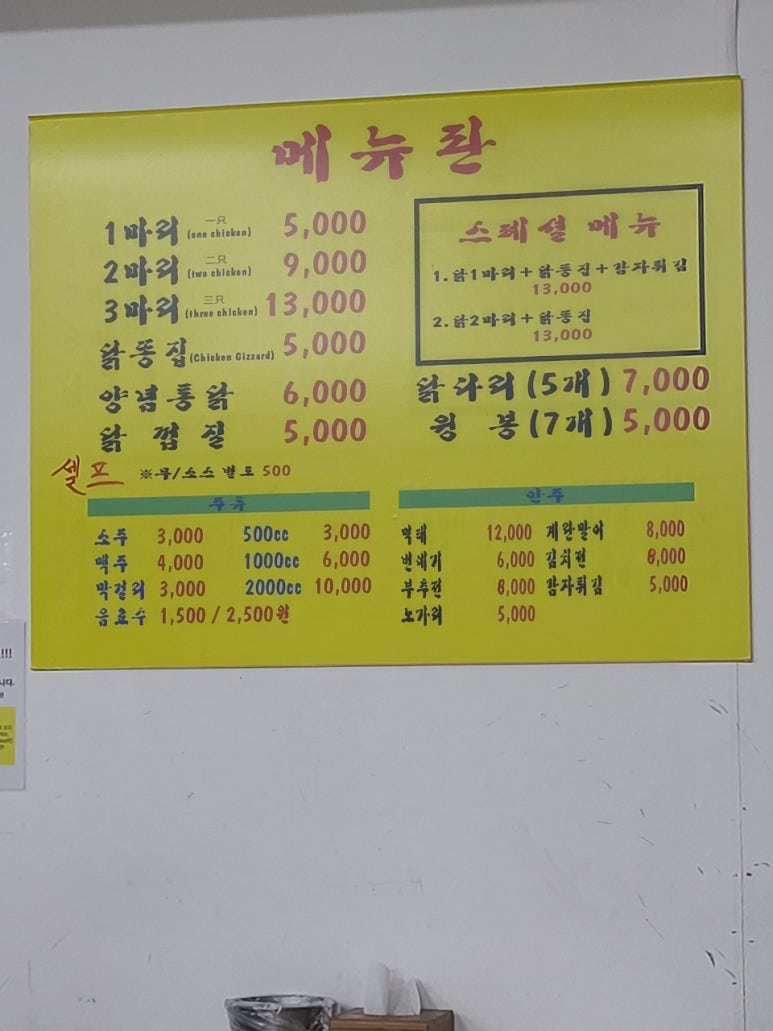 메뉴판
1마리 一只 (one chicken) 5,000
2마리 二只 (two chicken) 9,000
3마리 三只 (three chicken) 13,000
닭똥집 (Chicken Gizzard) 5,000
양념통닭 6,000
닭 껍 질 5,000
셀프 ※무/소스 별도 500
스페셜 메뉴
1. 닭1마리+닭똥집+감자튀김
13,000
2. 닭2마리+닭똥집
13,000
닭다리(5개) 7,000
윙 봉(7개) 5,000
주류
소주 3,000 500cc 3,000
맥주 4,000 1000cc 6,000
막걸리 3,000 2000cc 10,000
음료수 1,500 / 2,500원
안주
먹태 12,000 계란말이 8,000
번데기 6,000 김치전 8,000
부추전 8,000 감자튀김 5,000
노가리 5,000
!!!
니다.